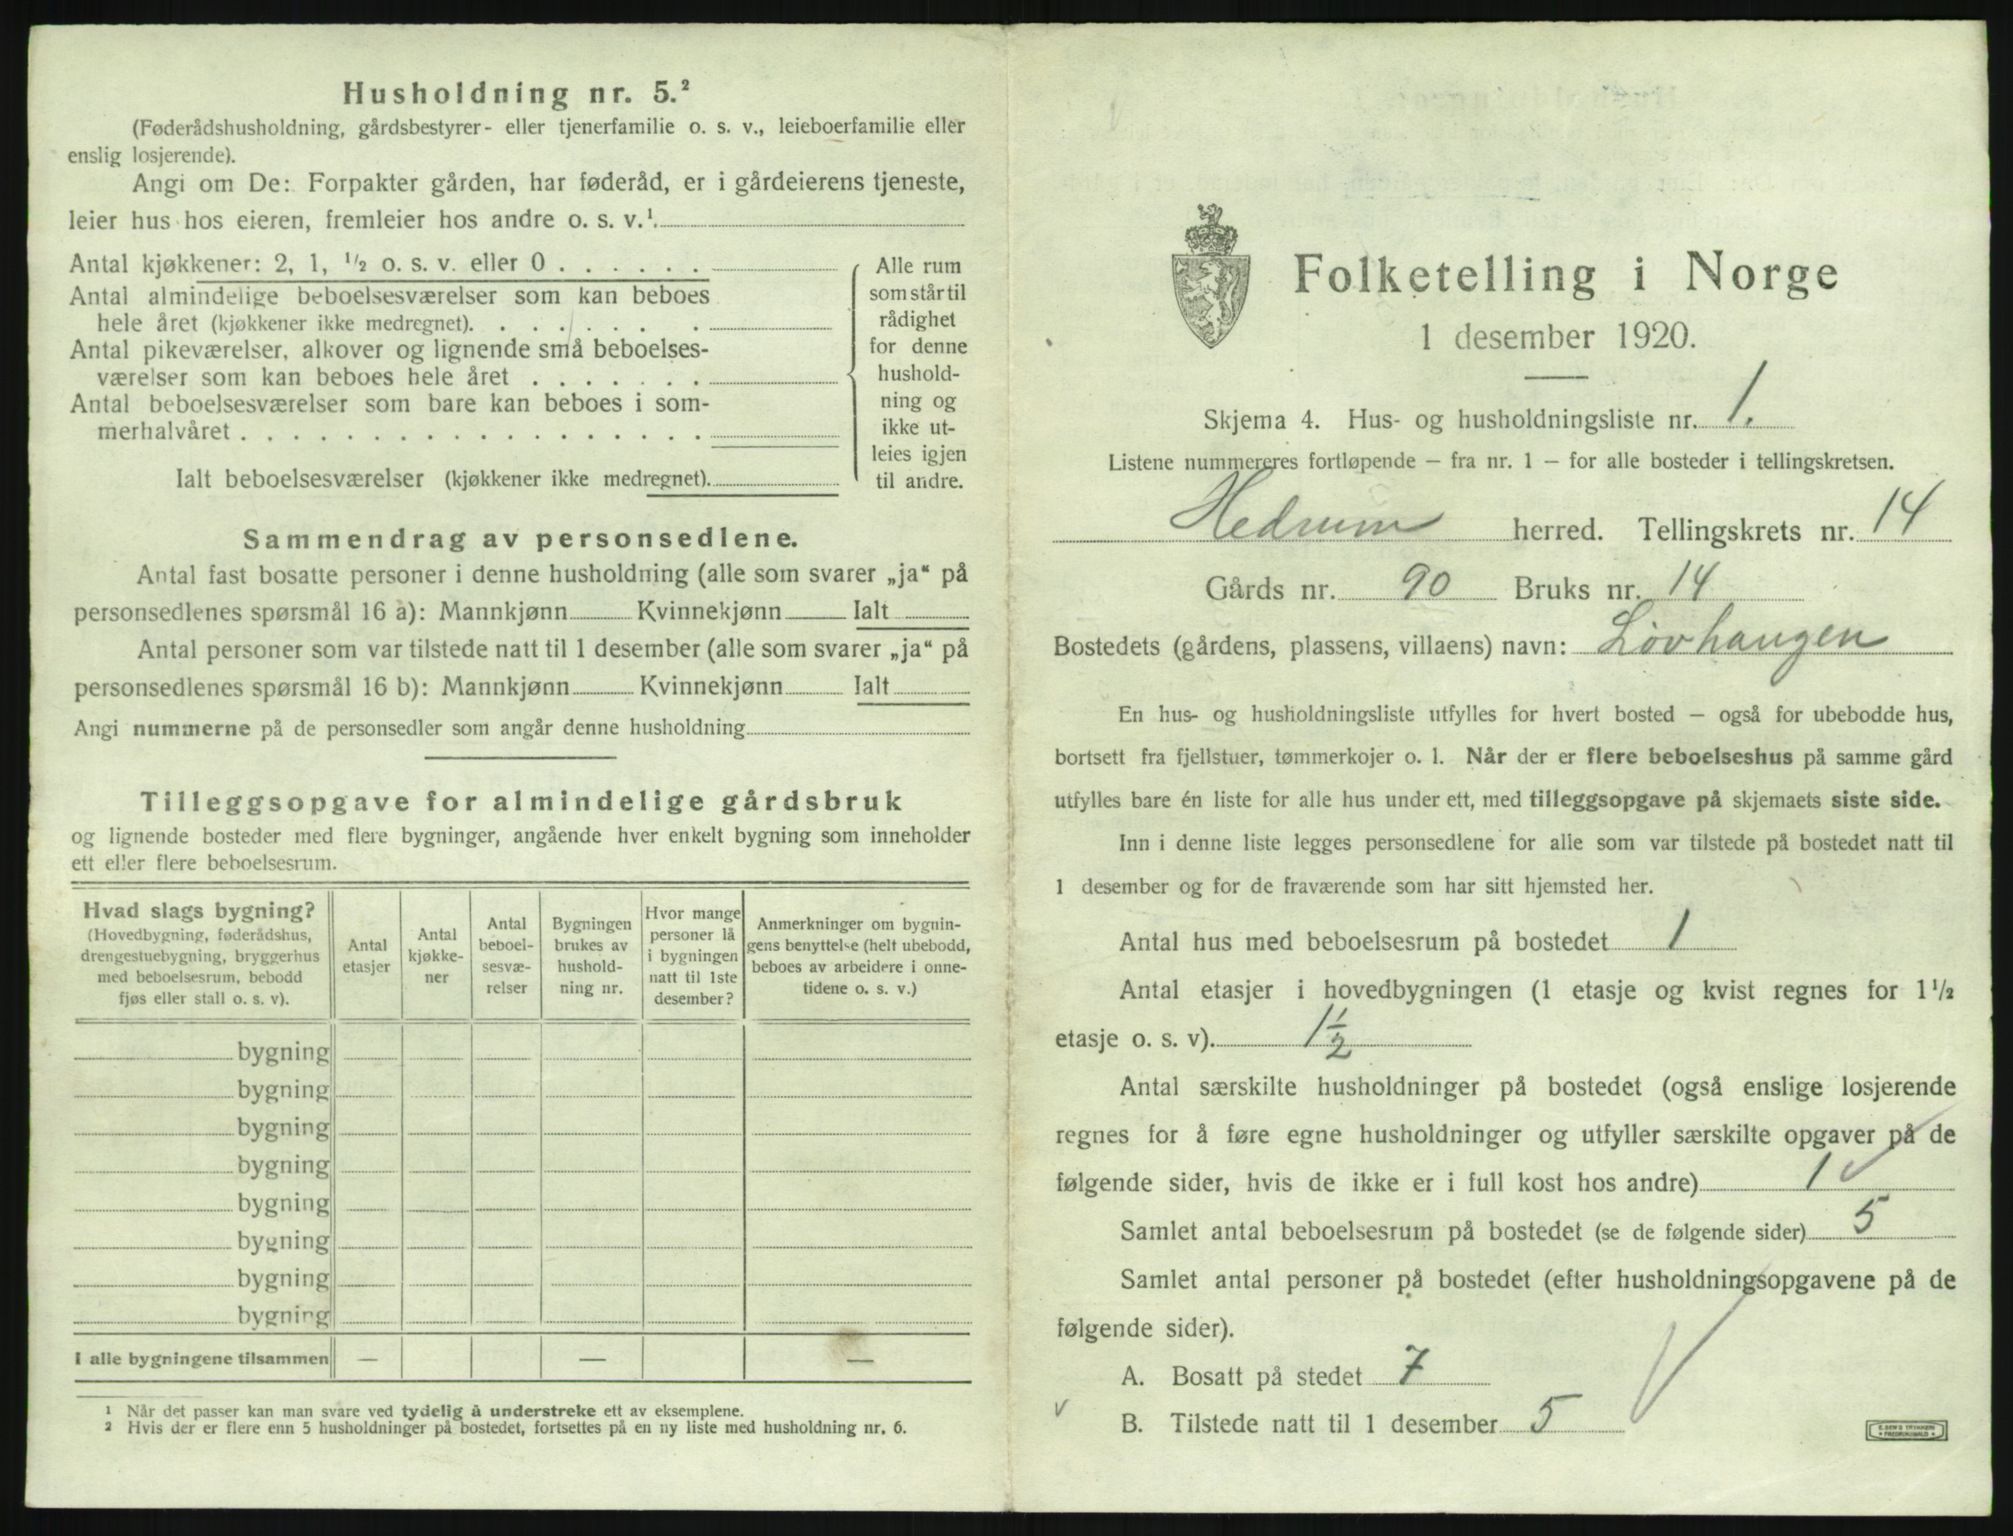 Husholdning nr. 5.²
(Føderådshusholdning, gårdsbestyrer- eller tjenerfamilie o. s. v., leieboerfamilie eller
enslig losjerende).
Angi om De: Forpakter gården, har føderåd, er i gårdeierens tjeneste,
leier hus hos eieren, fremleier hos andre o. s. v.¹
Antal kjøkkener: 2, 1, ¹/₂ o. s. v. eller 0 . . . . . .
Antal almindelige beboelsesværelser som kan beboes
hele året (kjøkkener ikke medregnet). . . . . . . .
Antal pikeværelser, alkover og lignende små beboelses-
værelser som kan beboes hele året . . . . . . .
Antal beboelsesværelser som bare kan beboes i som-
merhalvåret . . . . . . . . . . . . . . . . . .
Ialt beboelsesværelser (kjøkkener ikke medregnet).
Alle rum
som står til
rådighet
for denne
hushold-
ning og
ikke ut-
leies igjen
til andre.
Sammendrag av personsedlene.
Antal fast bosatte personer i denne husholdning (alle som svarer „ja“ på
personsedlenes spørsmål 16 a): Mannkjønn Kvinnekjønn Ialt
Antal personer som var tilstede natt til 1 desember (alle som svarer „ja“ på
personsedlenes spørsmål 16 b): Mannkjønn Kvinnekjønn Ialt
Angi nummerne på de personsedler som angår denne husholdning
Tilleggsopgave for almindelige gårdsbruk
og lignende bosteder med flere bygninger, angående hver enkelt bygning som inneholder
ett eller flere beboelsesrum.
Hvad slags bygning?
(Hovedbygning, føderådshus,
drengestuebygning, bryggerhus
med beboelsesrum, bebodd
fjøs eller stall o. s. v).
Antal
etasjer
Antal
kjøkke-
ner
Antal
beboel-
sesvæ-
relser
Bygningen
brukes av
hushold-
ning nr.
Hvor mange
personer lå
i bygningen
natt til 1ste
desember?
Anmerkninger om bygnin-
gens benyttelse (helt ubebodd,
beboes av arbeidere i onne-
tidene o. s. v.)
bygning
bygning
bygning
bygning
bygning
bygning
bygning
bygning
I alle bygningene tilsammen — — —
¹ Når det passer kan man svare ved tydelig å understreke ett av eksemplene.
² Hvis der er flere enn 5 husholdninger på bostedet, fortsettes på en ny liste med husholdning nr. 6.
Folketelling i Norge
1 desember 1920.
Skjema 4. Hus- og husholdningsliste nr. 1.
Listene nummereres fortløpende – fra nr. 1 – for alle bosteder i tellingskretsen.
Hedrum herred. Tellingskrets nr. 14
Gårds nr. 90 Bruks nr. 14
Bostedets (gårdens, plassens, villaens) navn: Løvhaugen
En hus- og husholdningsliste utfylles for hvert bosted – også for ubebodde hus,
bortsett fra fjellstuer, tømmerkojer o. l. Når der er flere beboelseshus på samme gård
utfylles bare én liste for alle hus under ett, med tilleggsopgave på skjemaets siste side.
Inn i denne liste legges personsedlene for alle som var tilstede på bostedet natt til
1 desember og for de fraværende som har sitt hjemsted her.
Antal hus med beboelsesrum på bostedet 1
Antal etasjer i hovedbygningen (1 etasje og kvist regnes for 1¹/₂
etasje o. s. v). 1½
Antal særskilte husholdninger på bostedet (også enslige losjerende
regnes for å føre egne husholdninger og utfyller særskilte opgaver på de
følgende sider, hvis de ikke er i full kost hos andre) 1
Samlet antal beboelsesrum på bostedet (se de følgende sider) 5
Samlet antal personer på bostedet (efter husholdningsopgavene på de
følgende sider).
A. Bosatt på stedet 7
B. Tilstede natt til 1 desember 5